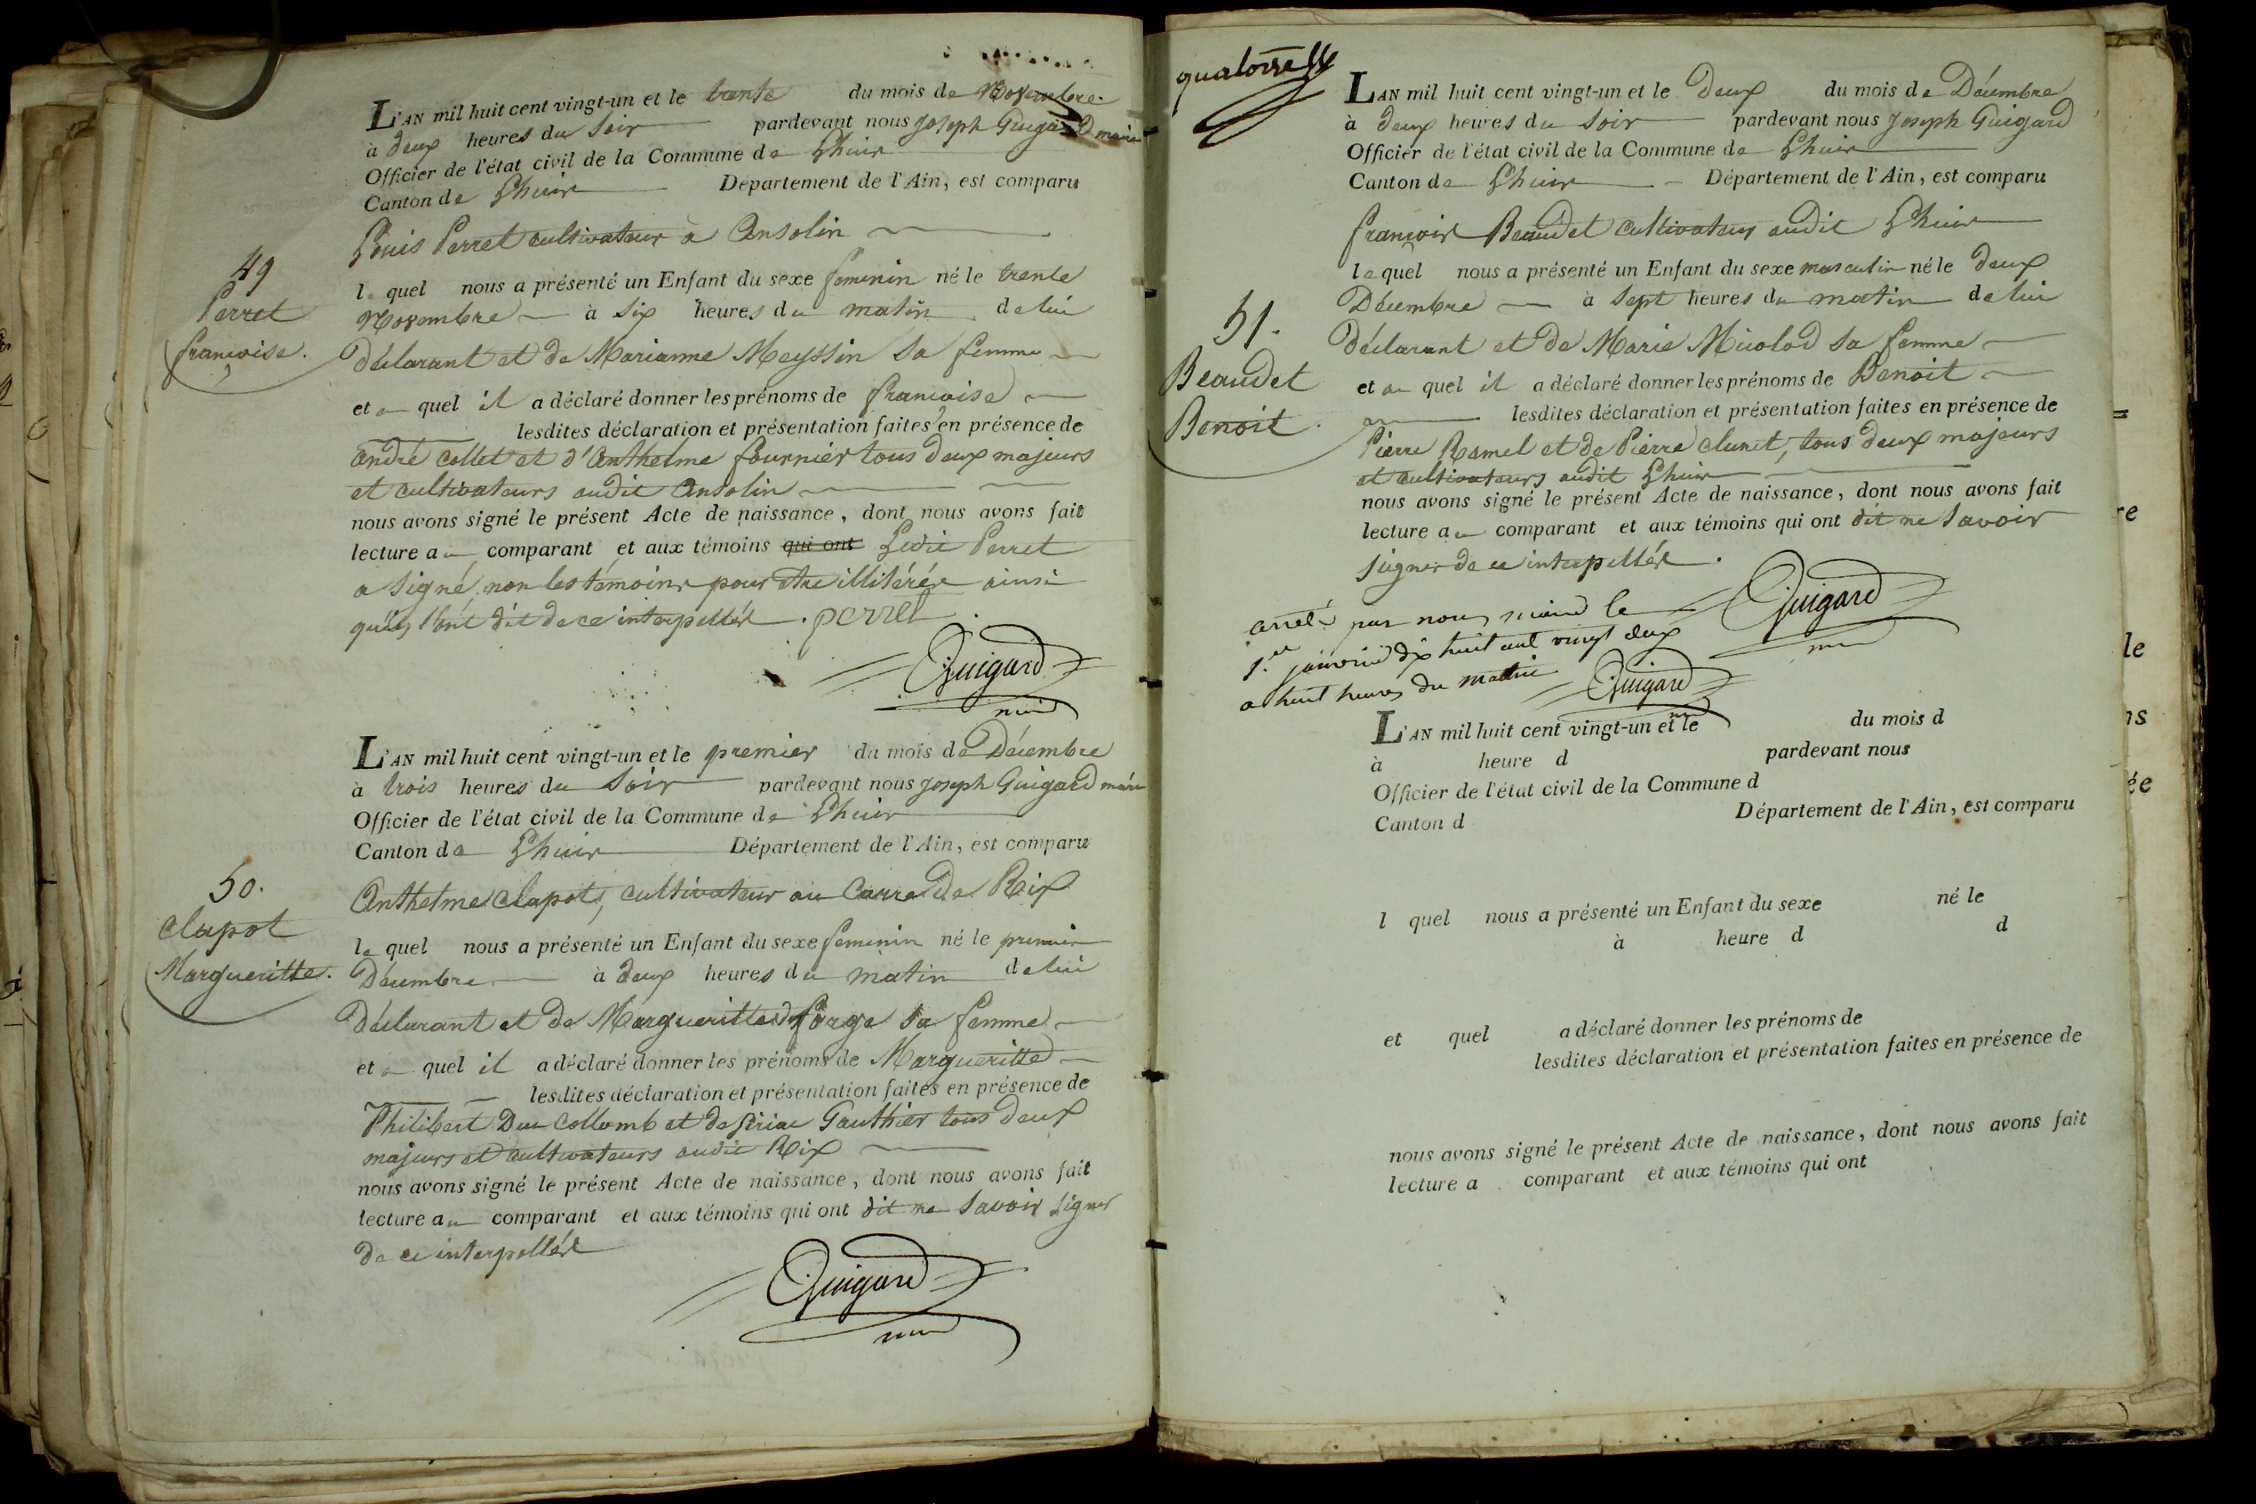 L'AN mil huit cent vingt-un et le trente du mois de Novembre
à deux heures du soir pardevant nous joseph Guigard maire
Officier de l'état civil de la Commune de Lhuis
Canton de Lhuis Département de l'Ain, est comparu
Louis Perret cultivateur à Ansolin
le quel nous a présenté un Enfant du sexe feminin né le trente
Novembre à six heures du matin de lui
déclarant et de Marianne Meyssin sa femme
et au quel il a déclaré donner les prénoms de françoise
lesdites déclaration et présentation faites en présence de
andré collet et d'anthelme fournier tous deux majeurs
et cultivateurs audit ansolin
nous avons signé le présent Acte de naissance, dont nous avons fait
lecture au comparant et aux témoins qui ont Ledit Perret
a signé non les témoins pour etre illitérés ainsi
qu'ils l'ont dit de ce interpellés. perret
Guigard
49
Perret
françoise.
L'AN mil huit cent vingt-un et le premier du mois de Décembre
à trois heures du soir pardevant nous joseph Guigard maire
Officier de l'état civil de la Commune de Lhuis
Canton de Lhuis Département de l'Ain, est comparu
Anthelme clapot, cultivateur au de Rix
le quel nous a présenté un Enfant du sexe feminin né le premier
Décembre à deux heures du matin de lui
Déclarant et de Margueritte forge sa femme
et au quel il a déclaré donner les prénoms de Margueritte
lesdites déclaration et présentation faites en présence de
Philibert Du Collomb et de Gauthier tous deux
majeurs et cultivateurs audit Rix
nous avons signé le présent Acte de naissance, dont nous avons fait
lecture au comparant et aux témoins qui ont dit ne savoir signer
de ce interpellés
Guigard
50.
clapot
Margueritte.
quatorze
L'AN mil huit cent vingt-un et le Deux du mois de Décembre
à deux heures du soir pardevant nous joseph Guigard
Officier de l'état civil de la Commune de Lhuis
Canton de Lhuis Département de l'Ain, est comparu
françois Beaudet cultivateur audit Lhuis
le quel nous a présenté un Enfant du sexe masculin né le deux
Décembre à sept heures du matin de lui
déclarant et de Marie Micolod sa femme
et au quel il a déclaré donner les prénoms de Benoit
lesdites déclaration et présentation faites en présence de
Pierre Ramel et de Pierre clunet, tous deux majeurs
et cultivateurs audit Lhuis
nous avons signé le présent Acte de naissance, dont nous avons fait
lecture au comparant et aux témoins qui ont dit ne savoir
signer de ce interpellés.
Guigard
51.
Beaudet
Benoit.
arreté par nous maire le
1.er janvier dix huit cent vingt deux
a huit heures du matin
Guigard
L'AN mil huit cent vingt-un et le du mois d
à heure d pardevant nous
Officier de l'état civil de la Commune d
Canton d Département de l'Ain, est comparu
l quel nous a présenté un Enfant du sexe né le
à heure d d
et quel a déclaré donner les prénoms de
lesdites déclaration et présentation faites en présence de
nous avons signé le présent Acte de naissance, dont nous avons fait
lecture a comparant et aux témoins qui ont